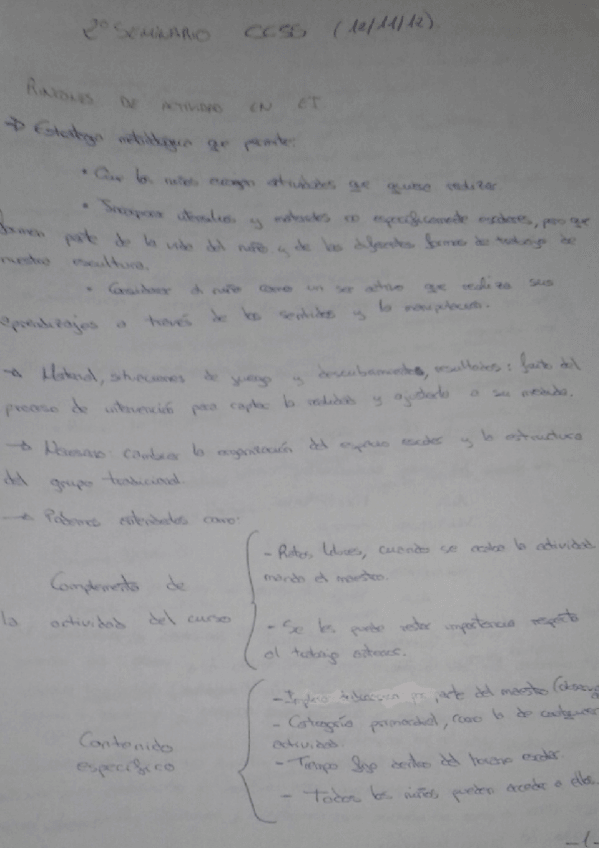 2º SEMINARIO CCSS (12/11/12)
RINCONES DE ACTIVIDAD EN EI
→ Estrategia metodológica que permite:
• Que los niños escojan actividades que quieran realizar.
• Incorporar utensilios y materiales no específicamente escolares, pero que
formen parte de la vida del niño y de las diferentes formas de trabajo de
nuestra
• Considerar al niño como un ser activo que realiza sus
aprendizajes a través de los sentidos y la manipulación.
→ Material, situaciones de juego y descubrimientos, resultados: fruto del
proceso de intervención para captar la realidad y ajustarla a su medida.
→ Necesario cambiar la organización del espacio escolar y la estructura
del grupo tradicional.
→ Podemos entenderlos como:
Complemento de
la actividad del curso
- Ratos libres, cuando se acaba la actividad
manda el maestro.
- Se les puede restar importancia respecto
al trabajo
Contenido
específico
- Implica parte del maestro
- Categoría primordial, como la de cualquier
actividad.
- Tiempo fijo dentro del horario escolar.
- Todos los niños pueden acceder a ellos.
-1-